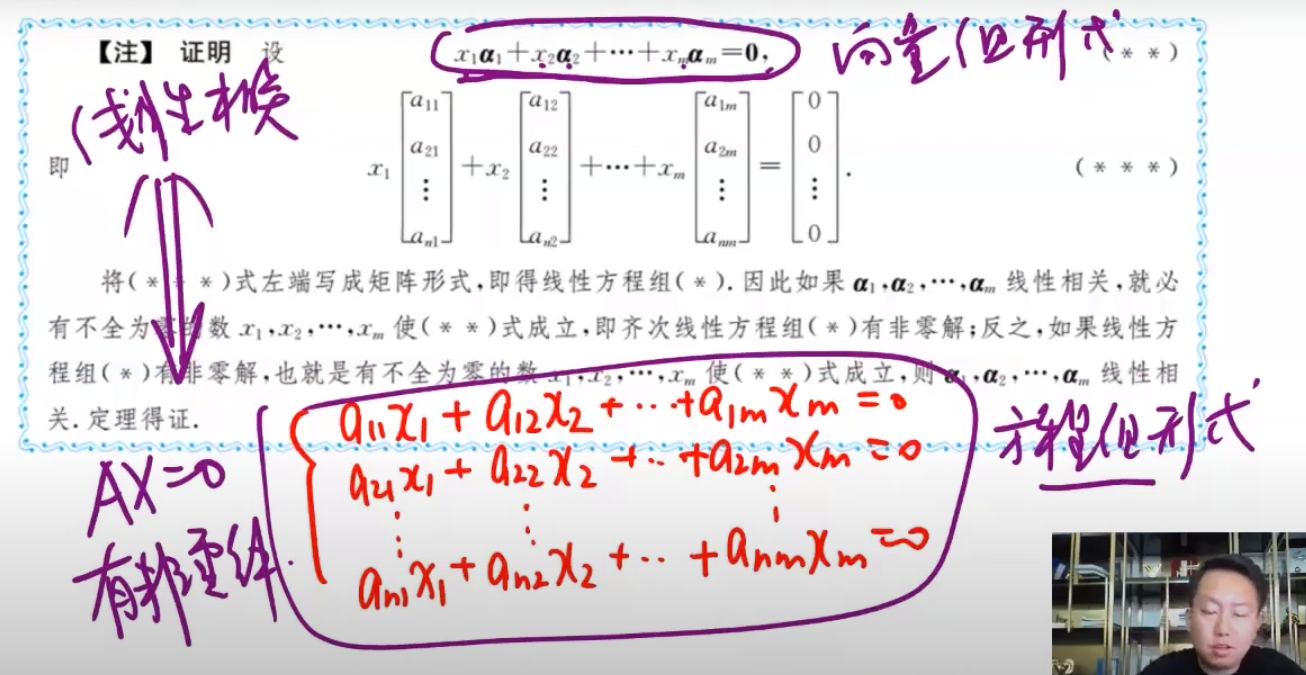 【注】 证明 设 x₁α₁+x₂α₂+⋯+xₘαₘ=0, (* *)
向量组形式
线性相关
即 x₁[a₁₁ a₂₁ ⋮ aₙ₁]+x₂[a₁₂ a₂₂ ⋮ aₙ₂]+⋯+xₘ[a₁ₘ a₂ₘ ⋮ aₙₘ]=[0 0 ⋮ 0]. (* * *)
将(* * *)式左端写成矩阵形式,即得线性方程组(*).因此如果 α₁,α₂,⋯,αₘ 线性相关,就必
有不全为零的数 x₁,x₂,⋯,xₘ 使(* *)式成立,即齐次线性方程组(*)有非零解;反之,如果线性方
程组(*)有非零解,也就是有不全为零的数 x₁,x₂,⋯,xₘ 使(* *)式成立,则 α₁,α₂,⋯,αₘ 线性相
关.定理得证.
a₁₁x₁+a₁₂x₂+⋯+a₁ₘxₘ=0
方程组形式
a₂₁x₁+a₂₂x₂+⋯+a₂ₘxₘ=0
⋮ ⋮ ⋮
aₙ₁x₁+aₙ₂x₂+⋯+aₙₘxₘ=0
AX=0
有非零解.